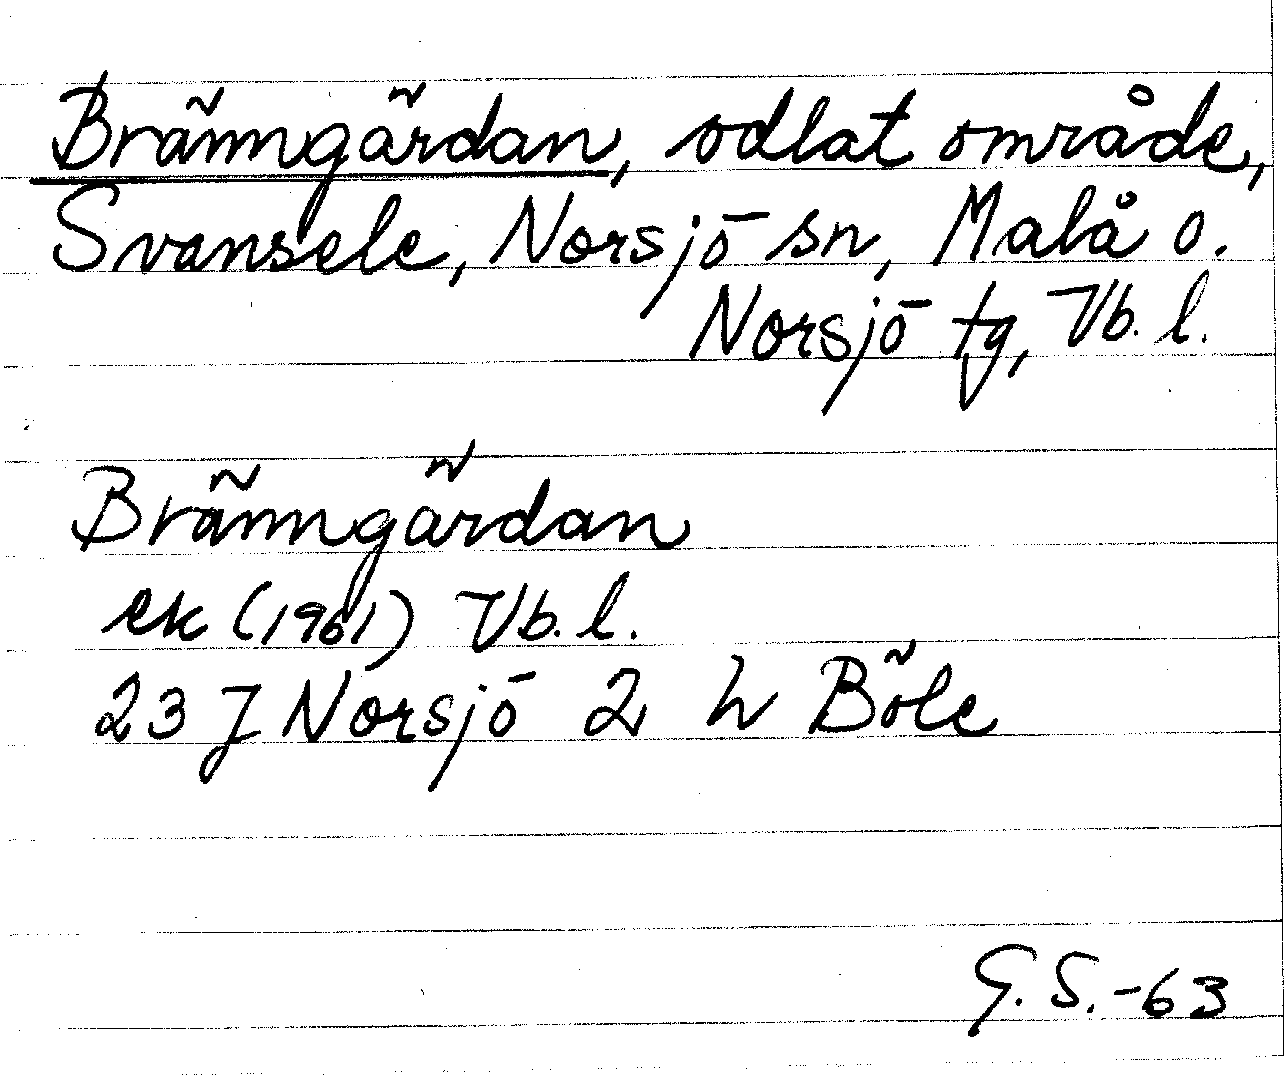 Bränngärdan, odlat område,
Svansele, Norsjö sn, Malå o.
Norsjö tg, Vb. l.
Bränngärdan
ek (1961) Vb. l.
23 J Norsjö 2 h Böle
G. S. -63